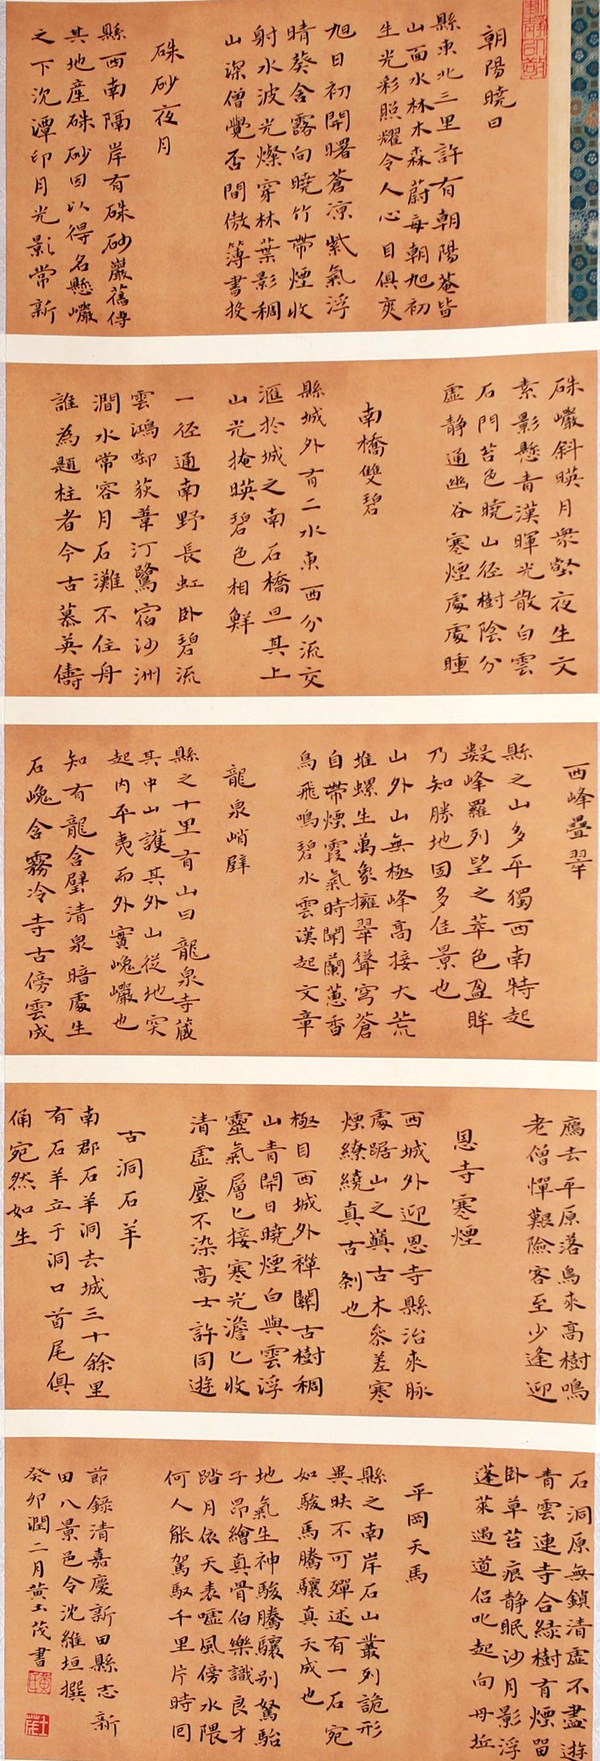 朝陽曉日
縣東北三里許有朝陽菴皆
山面水林木森蔚每朝旭初
生光彩照耀令人心目俱爽
旭日初開曙蒼涼紫氣浮
晴葵含露向曉竹帶煙收
射水波光燦穿林葉影稠
山深僧覺否閒做簿書投
硃砂夜月
縣西南隔岸有硃砂巖舊傳
其地產硃砂因以得名懸巖
之下沈潭印月光影常新
硃巖斜暎月衆壑夜生文
素影懸青漢暉光散白雲
石門苔色曉山徑樹陰分
虛靜通幽谷寒煙處處曛
南橋雙碧
縣城外有二水東西分流交
滙於城之南石橋亘其上
山光掩暎碧色相鮮
一徑通南野長虹臥碧流
雲鴻啣荻葦汀鷺宿沙洲
澗水常容月石灘不住舟
誰為題柱者今古慕英儔
西峰疊翠
縣之山多平獨西南特起
數峰羅列望之萃色盈眸
乃知勝地固多佳景也
山外山無極峰高接大荒
堆螺生萬象擁翠聳穹蒼
自帶煙霞氣時聞蘭蕙香
鳥飛鳴碧水雲漢起文章
龍泉峭壁
縣之十里有山曰龍泉寺藏
其中山護其外山從地突
起内平夷而外實巍巖也
知有龍含璧清泉暗處生
石巍含霧冷寺古傍雲成
鴈去平原落鳥來高樹鳴
老僧憚艱險客至少逢迎
恩寺寒煙
西城外迎恩寺縣治來脉
處踞山之巔古木參差寒
煙繚繞真古刹也
極目西城外禪關古樹稠
山青開日曉煙白與雲浮
靈氣層匕接寒光澹匕收
清虛塵不染高士許同遊
古洞石羊
南郡石羊洞去城三十餘里
有石羊立于洞口首尾俱
俑宛然如生
石洞原無鎖清虛不盡遊
青雲連寺合綠樹有煙留
臥草苔痕靜眠沙月影浮
蓬萊遇道侶叱起向丹丘
平岡天馬
縣之南岸石山叢列詭形
異昳不可殫述有一石宛
如駿馬騰驤真天成也
地氣生神駿騰驤别駑駘
子昂繪真骨伯樂識良才
踏月依天表嘘風傍水隈
何人能駕馭千里片時回
節錄清嘉慶新田縣志新
田八景邑令沈維垣撰
癸卯潤二月黃士茂書